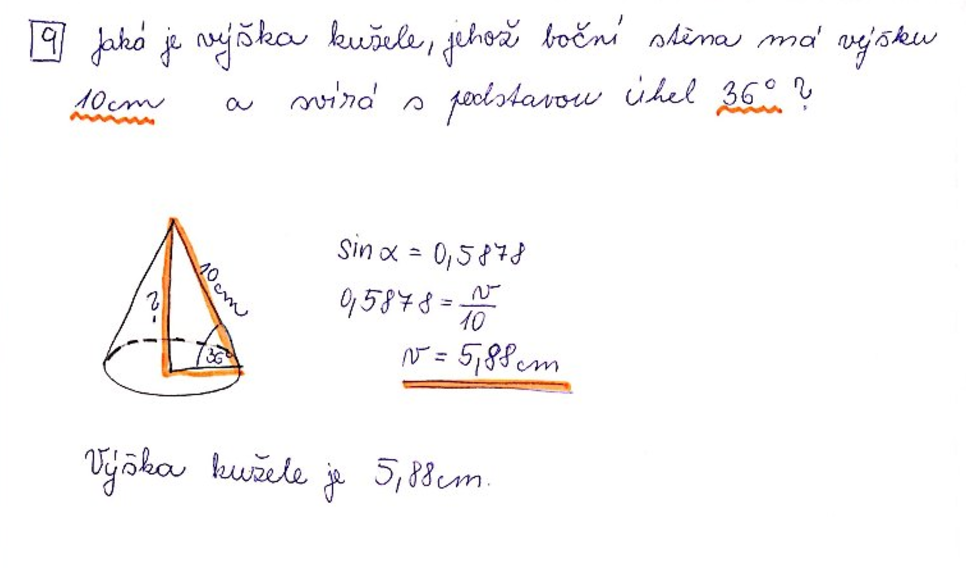 9 Jaká je výška kužele, jehož boční stěna má výšku
10cm a svírá s podstavou úhel 36° ?
sin α = 0,5878
10cm
?
0,5878 = v/10
36°
v = 5,88cm
Výška kužele je 5,88cm.